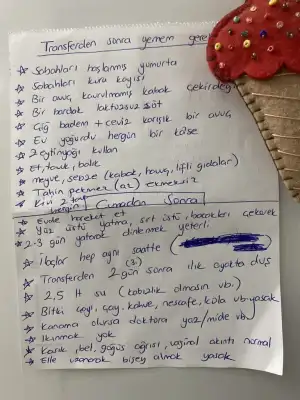 Transferden sonra yemem gere
☆ Sabahları haşlanmış yumurta
☆ Sabahları kuru kayısı
☆ Bir avuç kavrulmamış kabak çekirdeği
☆ Bir bardak laktozsuz süt
☆ Çiğ badem + ceviz karışık bir avuç
☆ Ev yoğurdu hergün bir kase
☆ Zeytinyağı kullan
☆ Et, tavuk, balık
☆ meyve, sebze (kabak, havuç, lifli gıdalar)
☆ Tahin pekmez (az) ekmeksiz
☆ Kivi 2 hergün
Cumadan Sonra
☆ Evde hareket et
☆ Yüz üstü yatma, sırt üstü, bacakları çekerek
☆ 2-3 gün yatarak dinlenmek yeterli.
☆ İlaçlar hep aynı saatte (
☆ Transferden 2 gün sonra ılık ayakta duş
(3.)
☆ 2,5 lt su (kabızlık olmasın vb.)
☆ Bitki çayı, çay, kahve, nescafe, kola vb. yasak
☆ Kanama olursa doktora yaz / mide vb.
☆ Ikınmak yok
☆ Kasık, bel, göğüs ağrısı, vajinal akıntı normal
☆ Elle uzanarak bişey almak yasak